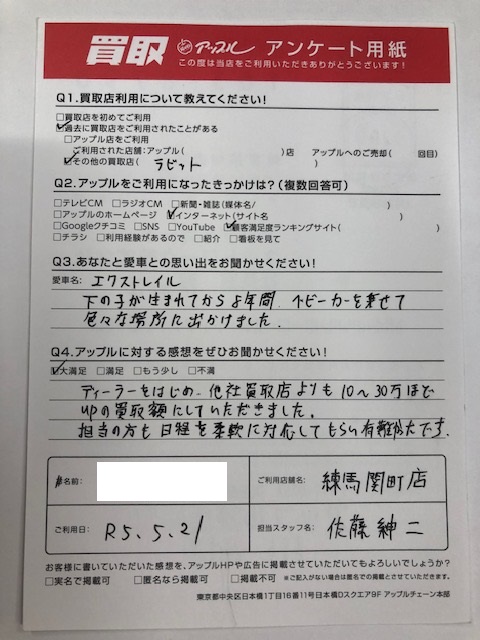 買取 アップル アンケート用紙
この度は当店をご利用いただきありがとうございます!
Q1.買取店利用について教えてください!
□買取店を初めてご利用
☑過去に買取店をご利用されたことがある
□アップル店をご利用
ご利用された店舗:アップル( )店 アップルへのご売却( 回目)
☑その他の買取店( ラビット )
Q2.アップルをご利用になったきっかけは?(複数回答可)
□テレビCM □ラジオCM □新聞・雑誌(媒体名/ )
□アップルのホームページ ☑インターネット(サイト名 )
□Googleクチコミ □SNS □YouTube ☑顧客満足度ランキングサイト( )
□チラシ □利用経験があるので □紹介 □看板を見て
Q3.あなたと愛車との思い出をお聞かせください!
愛車名: エクストレイル
下の子が生まれてから8年間、ベビーカーを乗せて
色々な場所に出かけました。
Q4.アップルに対する感想をぜひお聞かせください!
☑大満足 □満足 □もう少し □不満
ディーラーをはじめ、他社買取店よりも10〜30万ほど
upの買取額にしていただきました。
担当の方も日程を柔軟に対応してもらい有難かたです。
お名前:
ご利用店舗名: 練馬関町店
ご利用日: R5.5.21
担当スタッフ名: 佐藤紳二
お客様に書いていただいた感想を、アップルHPや広告に掲載させていただいてもよろしいでしょうか?
□実名で掲載可 □匿名なら掲載可 □掲載不可 ※ご記入がない場合は匿名での掲載とさせていただきます。
東京都中央区日本橋1丁目16番11号日本橋Dスクエア9F アップルチェーン本部